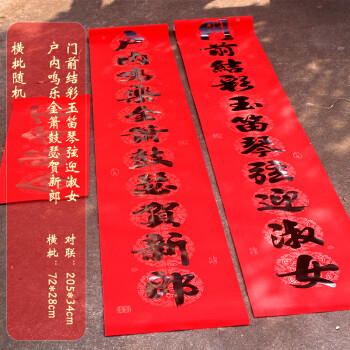 門前結彩玉笛琴弦迎淑女
户内鳴樂金簫鼓瑟賀新郎
门前结彩玉笛琴弦迎淑女
户内鸣乐金箫鼓瑟贺新郎
横批随机
对联：205*34cm
横批：72*28cm